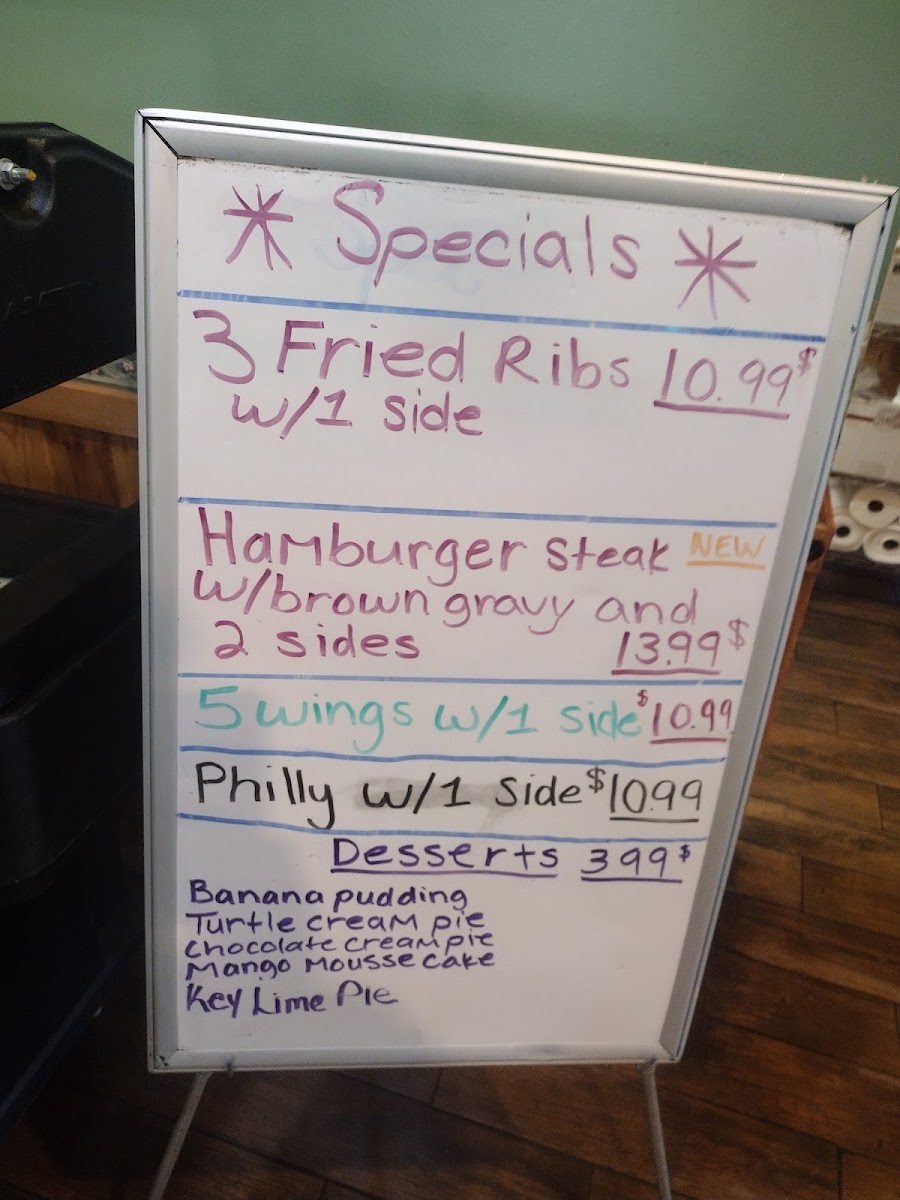 * Specials *
3 Fried Ribs 10.99$
w/1 side
Hamburger Steak NEW
w/brown gravy and
2 sides 13.99$
5 wings w/1 side $10.99
Philly w/1 side $10.99
Desserts 399$
Banana pudding
Turtle cream pie
chocolate cream pie
Mango Mousse cake
Key Lime Pie